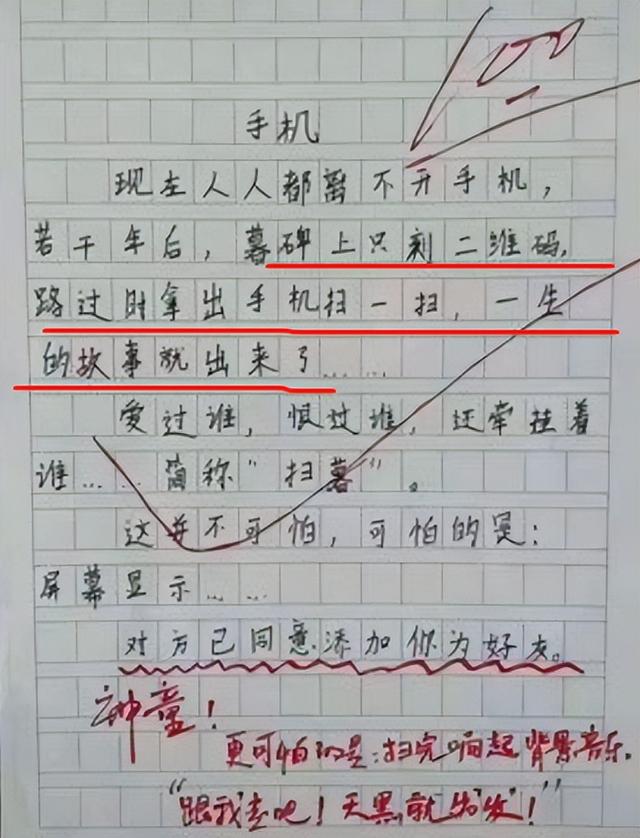 100
手机
现在人人都离不开手机，
若干年后，暮碑上只刻二维码，
路过时拿出手机扫一扫，一生
的故事就出来了……
爱过谁，恨过谁，还牵挂着
谁……简称“扫暮”。
这并不可怕，可怕的是：
屏幕显示……
对方已同意添加你为好友。
神童！
更可怕的是：扫完响起背景音乐.
“跟我走吧！天黑就出“发”！”